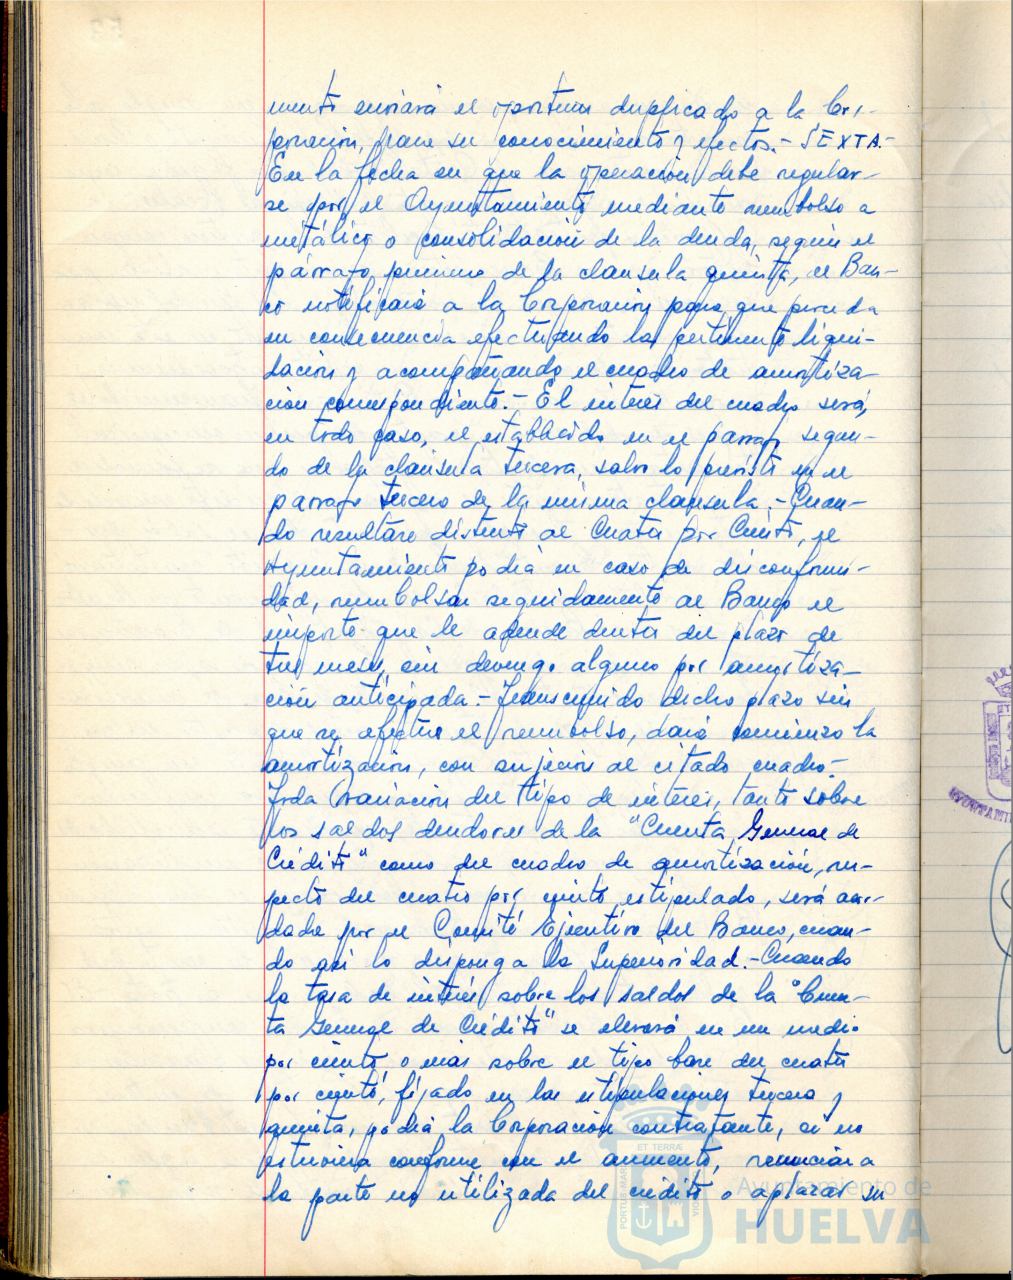 mento enviará el oportuno duplicado a la Cor-
poración, para su conocimiento y efectos.- SEXTA.-
En la fecha en que la operación debe regular-
se por el Ayuntamiento mediante reembolso a
metálico o consolidación de la deuda, según el
párrafo primero de la clausula quinta, el Ban-
co notificará a la Corporación para que proceda
en consecuencia efectuando la pertinente liqui-
dación y acompañando el cuadro de amortiza-
ción correspondiente.- El interés del cuadro será,
en todo caso, el establecido en el parrafo segun-
do de la clausula tercera, salvo lo previsto en el
parrafo tercero de la misma clausula.- Cuan-
do resultare distinto al Cuatro por Ciento, el
Ayuntamiento podrá en caso de disconformi-
dad, reembolsar seguidamente al Banco el
importe que le adeude dentro del plazo de
tres meses, sin devengo alguno por amortiza-
ción anticipada.- Transcurrido dicho plazo sin
que se efectue el reembolso, dará comienzo la
amortización, con sujeción al citado cuadro.-
Toda variación del tipo de interés, tanto sobre
los saldos deudores de la "Cuenta General de
Crédito" como del cuadro de amortización, res-
pecto del cuatro por ciento estipulado, será acor-
dada por el Comité Ejecutivo del Banco, cuan-
do asi lo disponga la Superioridad.- Cuando
la tasa de interés sobre los saldos de la "Cuen-
ta General de Crédito" se elevará en un medio
por ciento o más sobre el tipo base del cuatro
por ciento, fijado en las estipulaciones tercera y
quinta, podrá la Corporación contratante, si no
estuviera conforme con el aumento, renunciar a
la parte no utilizada del crédito o aplazar su
ET TERRAE
Ayuntamiento de
HUELVA